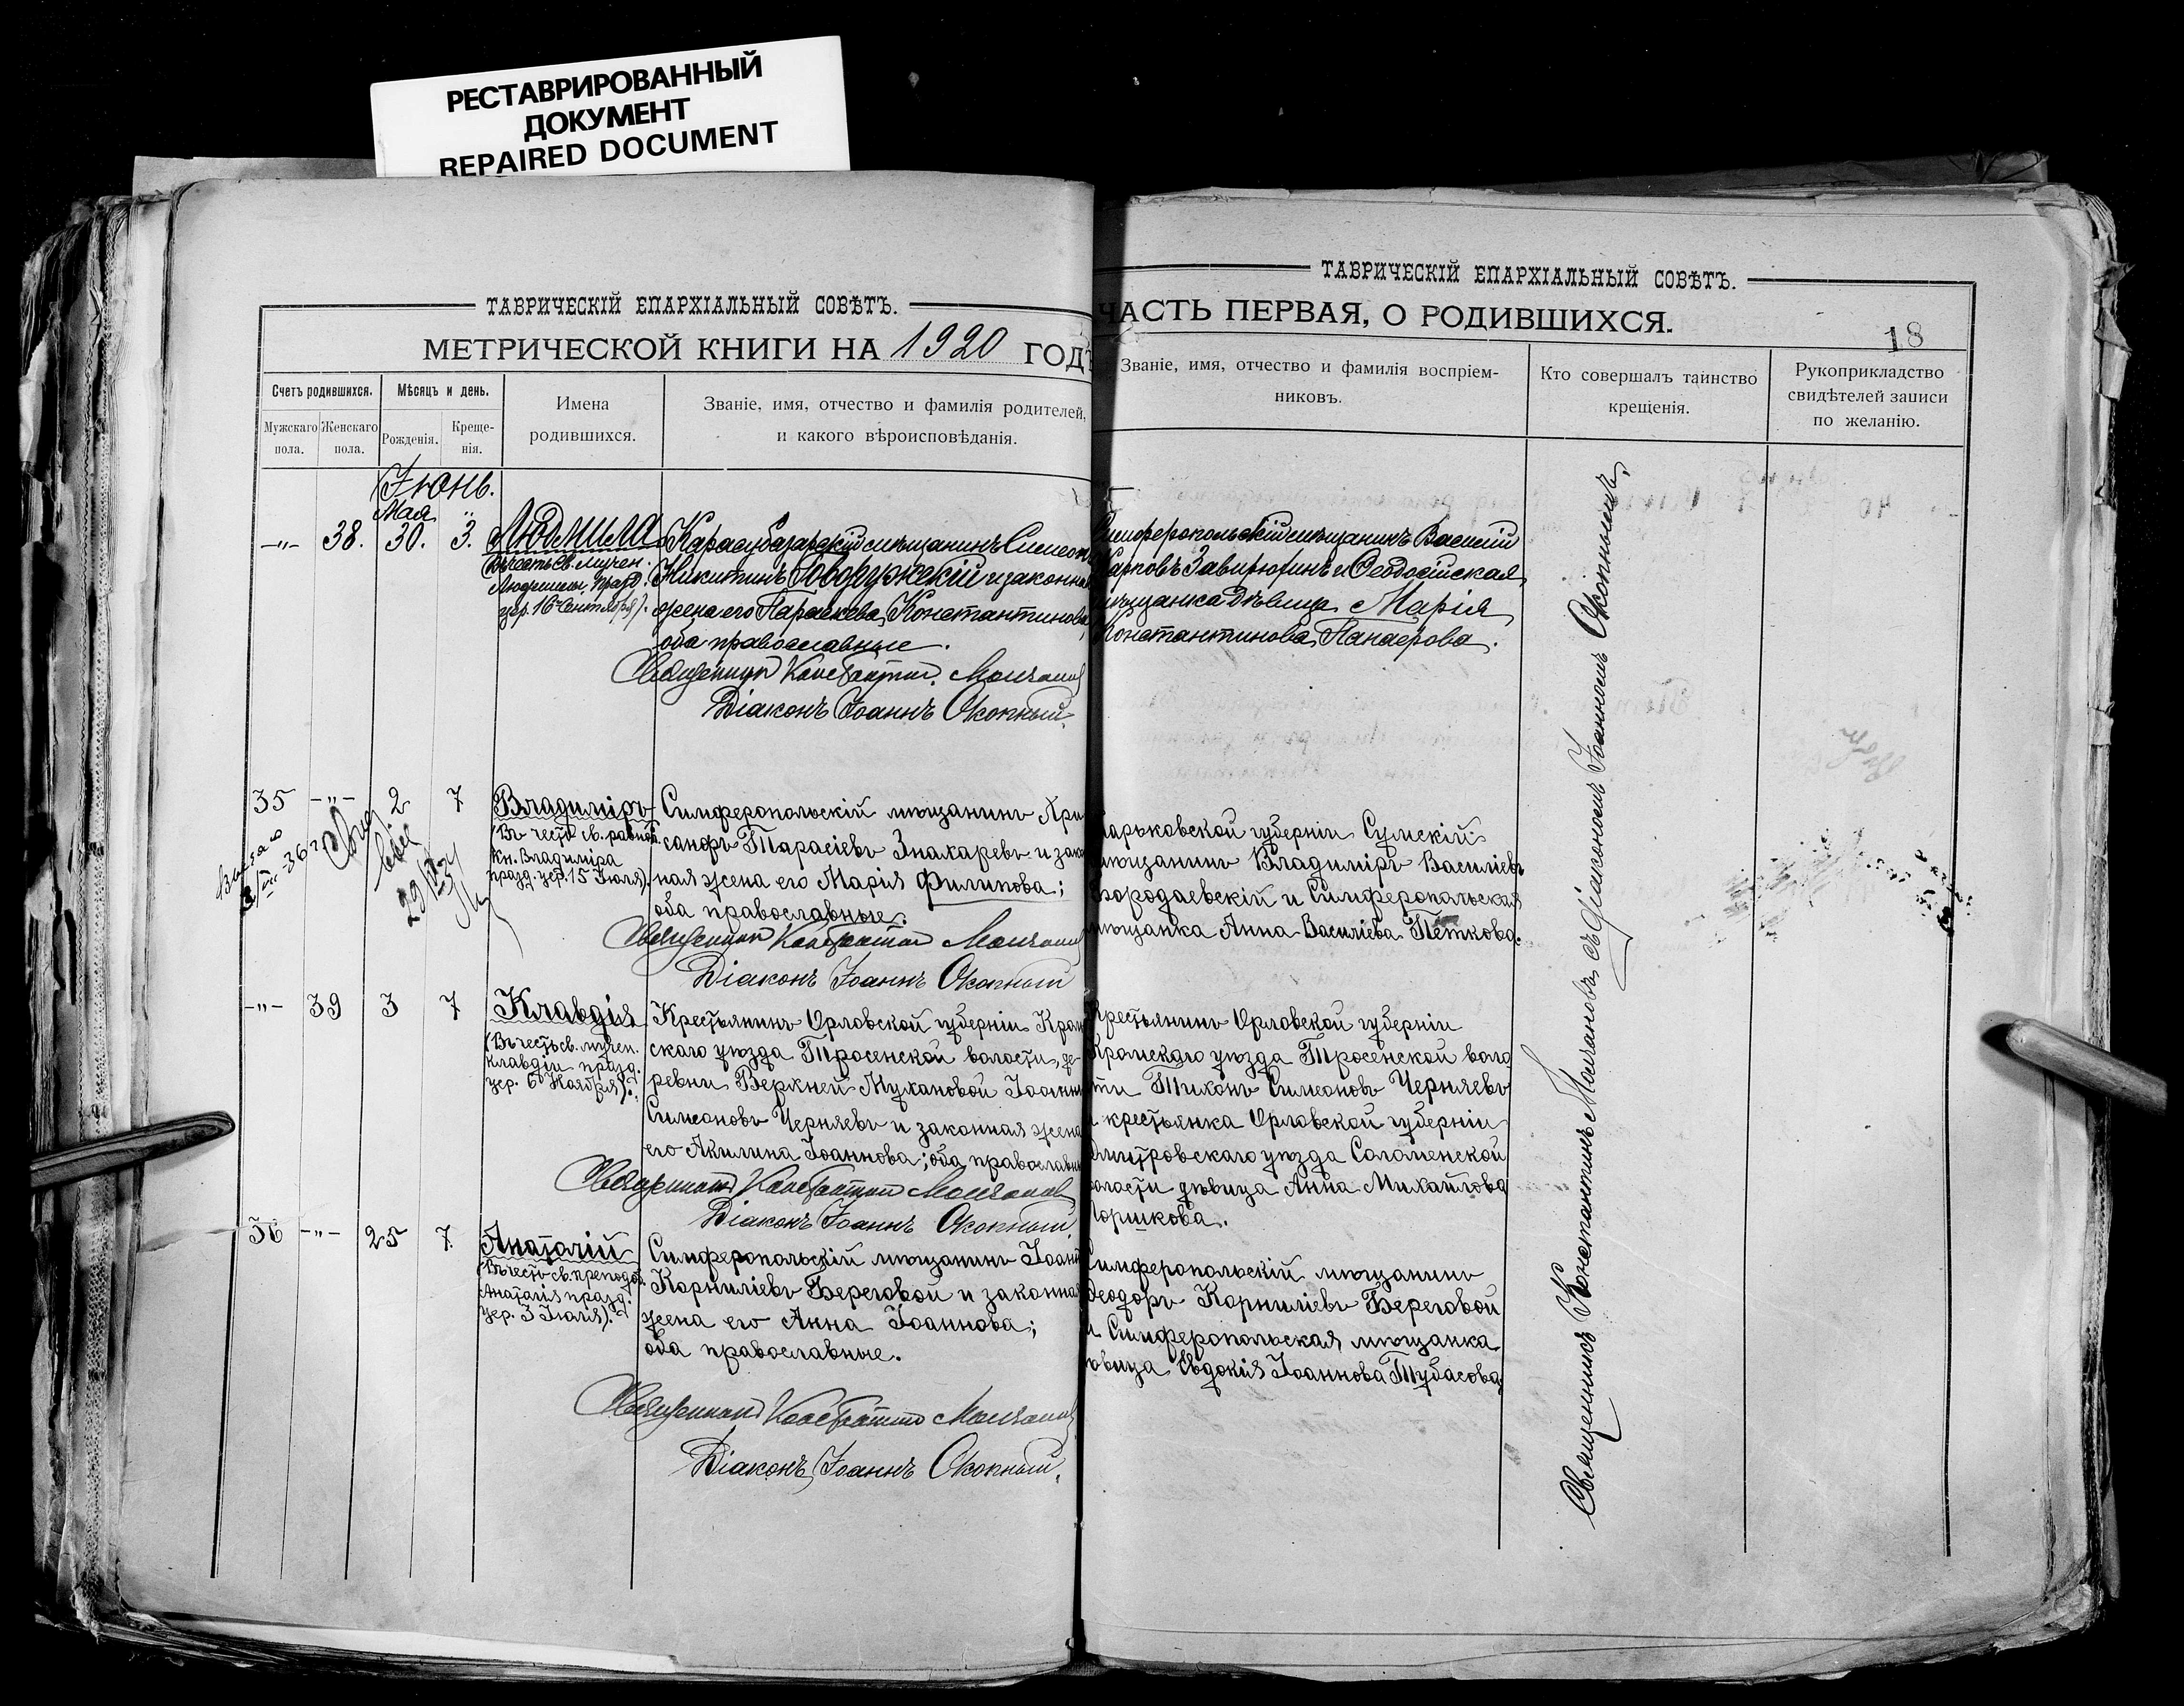 РЕСТАВРИРОВАННЫЙ
ДОКУМЕНТ
REPAIRED DOCUMENT
ТАВРИЧЕСКІЙ ЕПАРХІАЛЬНЫЙ СОВѢТЪ.
МЕТРИЧЕСКОЙ КНИГИ НА 1920 ГОДЪ
Счетъ родившихся.
Мужскаго пола.
Женскаго пола.
Мѣсяцъ и день.
Рожденія.
Креще-
нія.
Имена
родившихся.
Званіе, имя, отчество и фамилія родителей,
и какого вѣроисповѣданія.
Іюнь.
Мая
-"- 38. 30. 3.
Людмила
(Въ честь св. мучен.
Людмилы, празд.
цер. 16 Сентября).
Карасубазарскій мѣщанинъ Симеон
Никитинъ Говоружскій и законна
жена его Параскева Константинова
оба православные.
Священникъ Константинъ Молчанов
Діаконъ Іоаннъ Окопный.
35 -"- 2 7
Владиміръ
(Въ честь св. равноап.
кн. Владиміра
празд. цер. 15 Іюля).
Симферопольскій мѣщанинъ Хри
санфъ Тарасіевъ Знахаревъ и зако
ная жена его Марія Филипова;
оба православные.
Священникъ Константинъ Молчанов
Діаконъ Іоаннъ Окопный
-"- 39 3 7
Клавдія
(Въ честь св. мучен.
Клавдіи празд.
цер. 6 Ноября).
Крестьянинъ Орловской губерніи Кром
скаго уѣзда Тросенской волости, де-
ревни Верхней Мухановой Іоанн
Симеоновъ Черняевъ и законная жена
его Акилина Іоаннова; оба православн
Священникъ Константинъ Молчанов
Діаконъ Іоаннъ Окопный.
36 -"- 25 7.
Анатолій
(Въ честь св. преподоб.
Анатолія празд.
цер. 3 Іюля).
Симферопольскій мѣщанинъ Іоанн
Корниліевъ Береговой и законная
жена его Анна Іоаннова;
оба православные.
Священникъ Константинъ Молчанов
Діаконъ Іоаннъ Окопный.
ТАВРИЧЕСКІЙ ЕПАРХІАЛЬНЫЙ СОВѢТЪ.
ЧАСТЬ ПЕРВАЯ, О РОДИВШИХСЯ.
18
Званіе, имя, отчество и фамилія воспріем-
никовъ.
Кто совершалъ таинство
крещенія.
Рукоприкладство
свидѣтелей записи
по желанію.
Симферопольскій мѣщанинъ Василій
Марковъ Завирюхинъ и Ѳеодосійская
мѣщанка дѣвица Марія
Константинова Панаерова.
Харьковской губерніи Сумскій
мѣщанинъ Владиміръ Василіевъ
Бородаевскій и Симферопольская
мѣщанка Анна Василіева Петкова.
Крестьянинъ Орловской губерніи
Кромскаго уѣзда Тросенской воло
сти Тихонъ Симеоновъ Черняевъ
и крестьянка Орловской губерніи
Дмитровскаго уѣзда Соломенской
волости дѣвица Анна Михайлова
Горшкова.
Симферопольскій мѣщанинъ
Ѳеодоръ Корниліевъ Береговой
и Симферопольская мѣщанка
дѣвица Евдокія Іоаннова Тубасова
Священникъ Константинъ Молчановъ съ діакономъ Іоанномъ Окопнымъ.